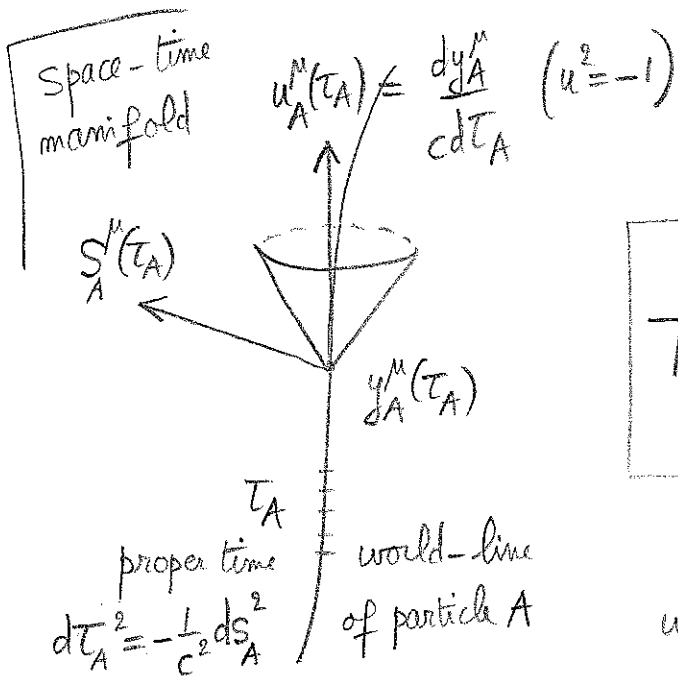 Space-time
manifold
u_A^μ(τ_A) = dy_A^μ / cdτ_A (u² = -1)
S_A^μ(τ_A)
y_A^μ(τ_A)
τ_A
proper time
dτ_A² = -1/c² ds_A²
world-line
of particle A